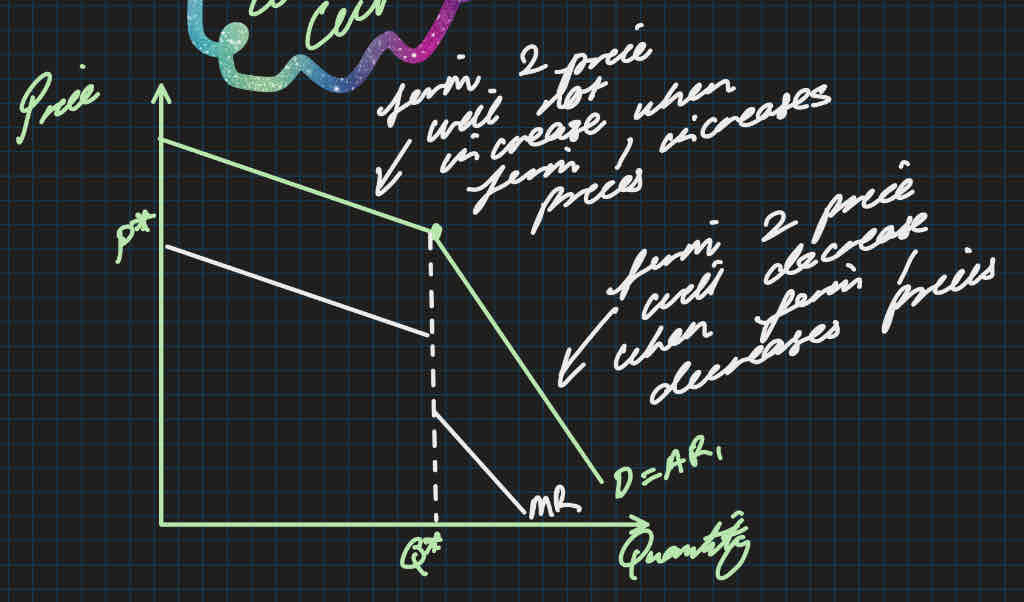 Price
firm 2 price
will not
increase when
firm 1 increases
prices
P*
firm 2 price
will decrease
when firm 1
decreases prices
D=AR₁
MR
Q*
Quantity